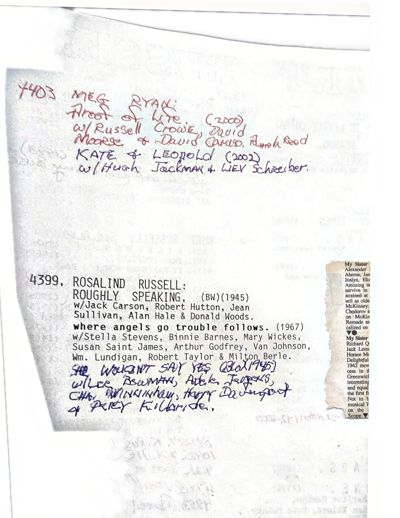 4403 MEG RYAN:
Proof of Life (2000)
w/Russell Crowe, David
Morse & David Caruso, Pamela Reed
KATE & LEOPOLD (2002)
w/Hugh Jackman & LIEV Schreiber.
4399. ROSALIND RUSSELL:
ROUGHLY SPEAKING. (BW)(1945)
w/Jack Carson, Robert Hutton, Jean
Sullivan, Alan Hale & Donald Woods.
where angels go trouble follows. (1967)
w/Stella Stevens, Binnie Barnes, Mary Wickes,
Susan Saint James, Arthur Godfrey, Van Johnson,
Wm. Lundigan, Robert Taylor & Milton Berle.
SHE WOULDN'T SAY YES (B&W)(1945)
w/Lee Bowman, Adele Jergens,
Chas. Winninger, Harry Davenport
& Percy Kilbride.
My Sister
Alexander
Aherne, Jan
Joslyn, Eliz
Amusing
survive in
strained at
well as olde
McKinney,
Chodorov
on: McKin
Remade a
calized on
My Sister
Richard Q
Jack Lem
Horace M
Delightful
1942 mov
cess in t
Greenwich
interesting
and equal
the first fi
Not to
musical
on the
Scope